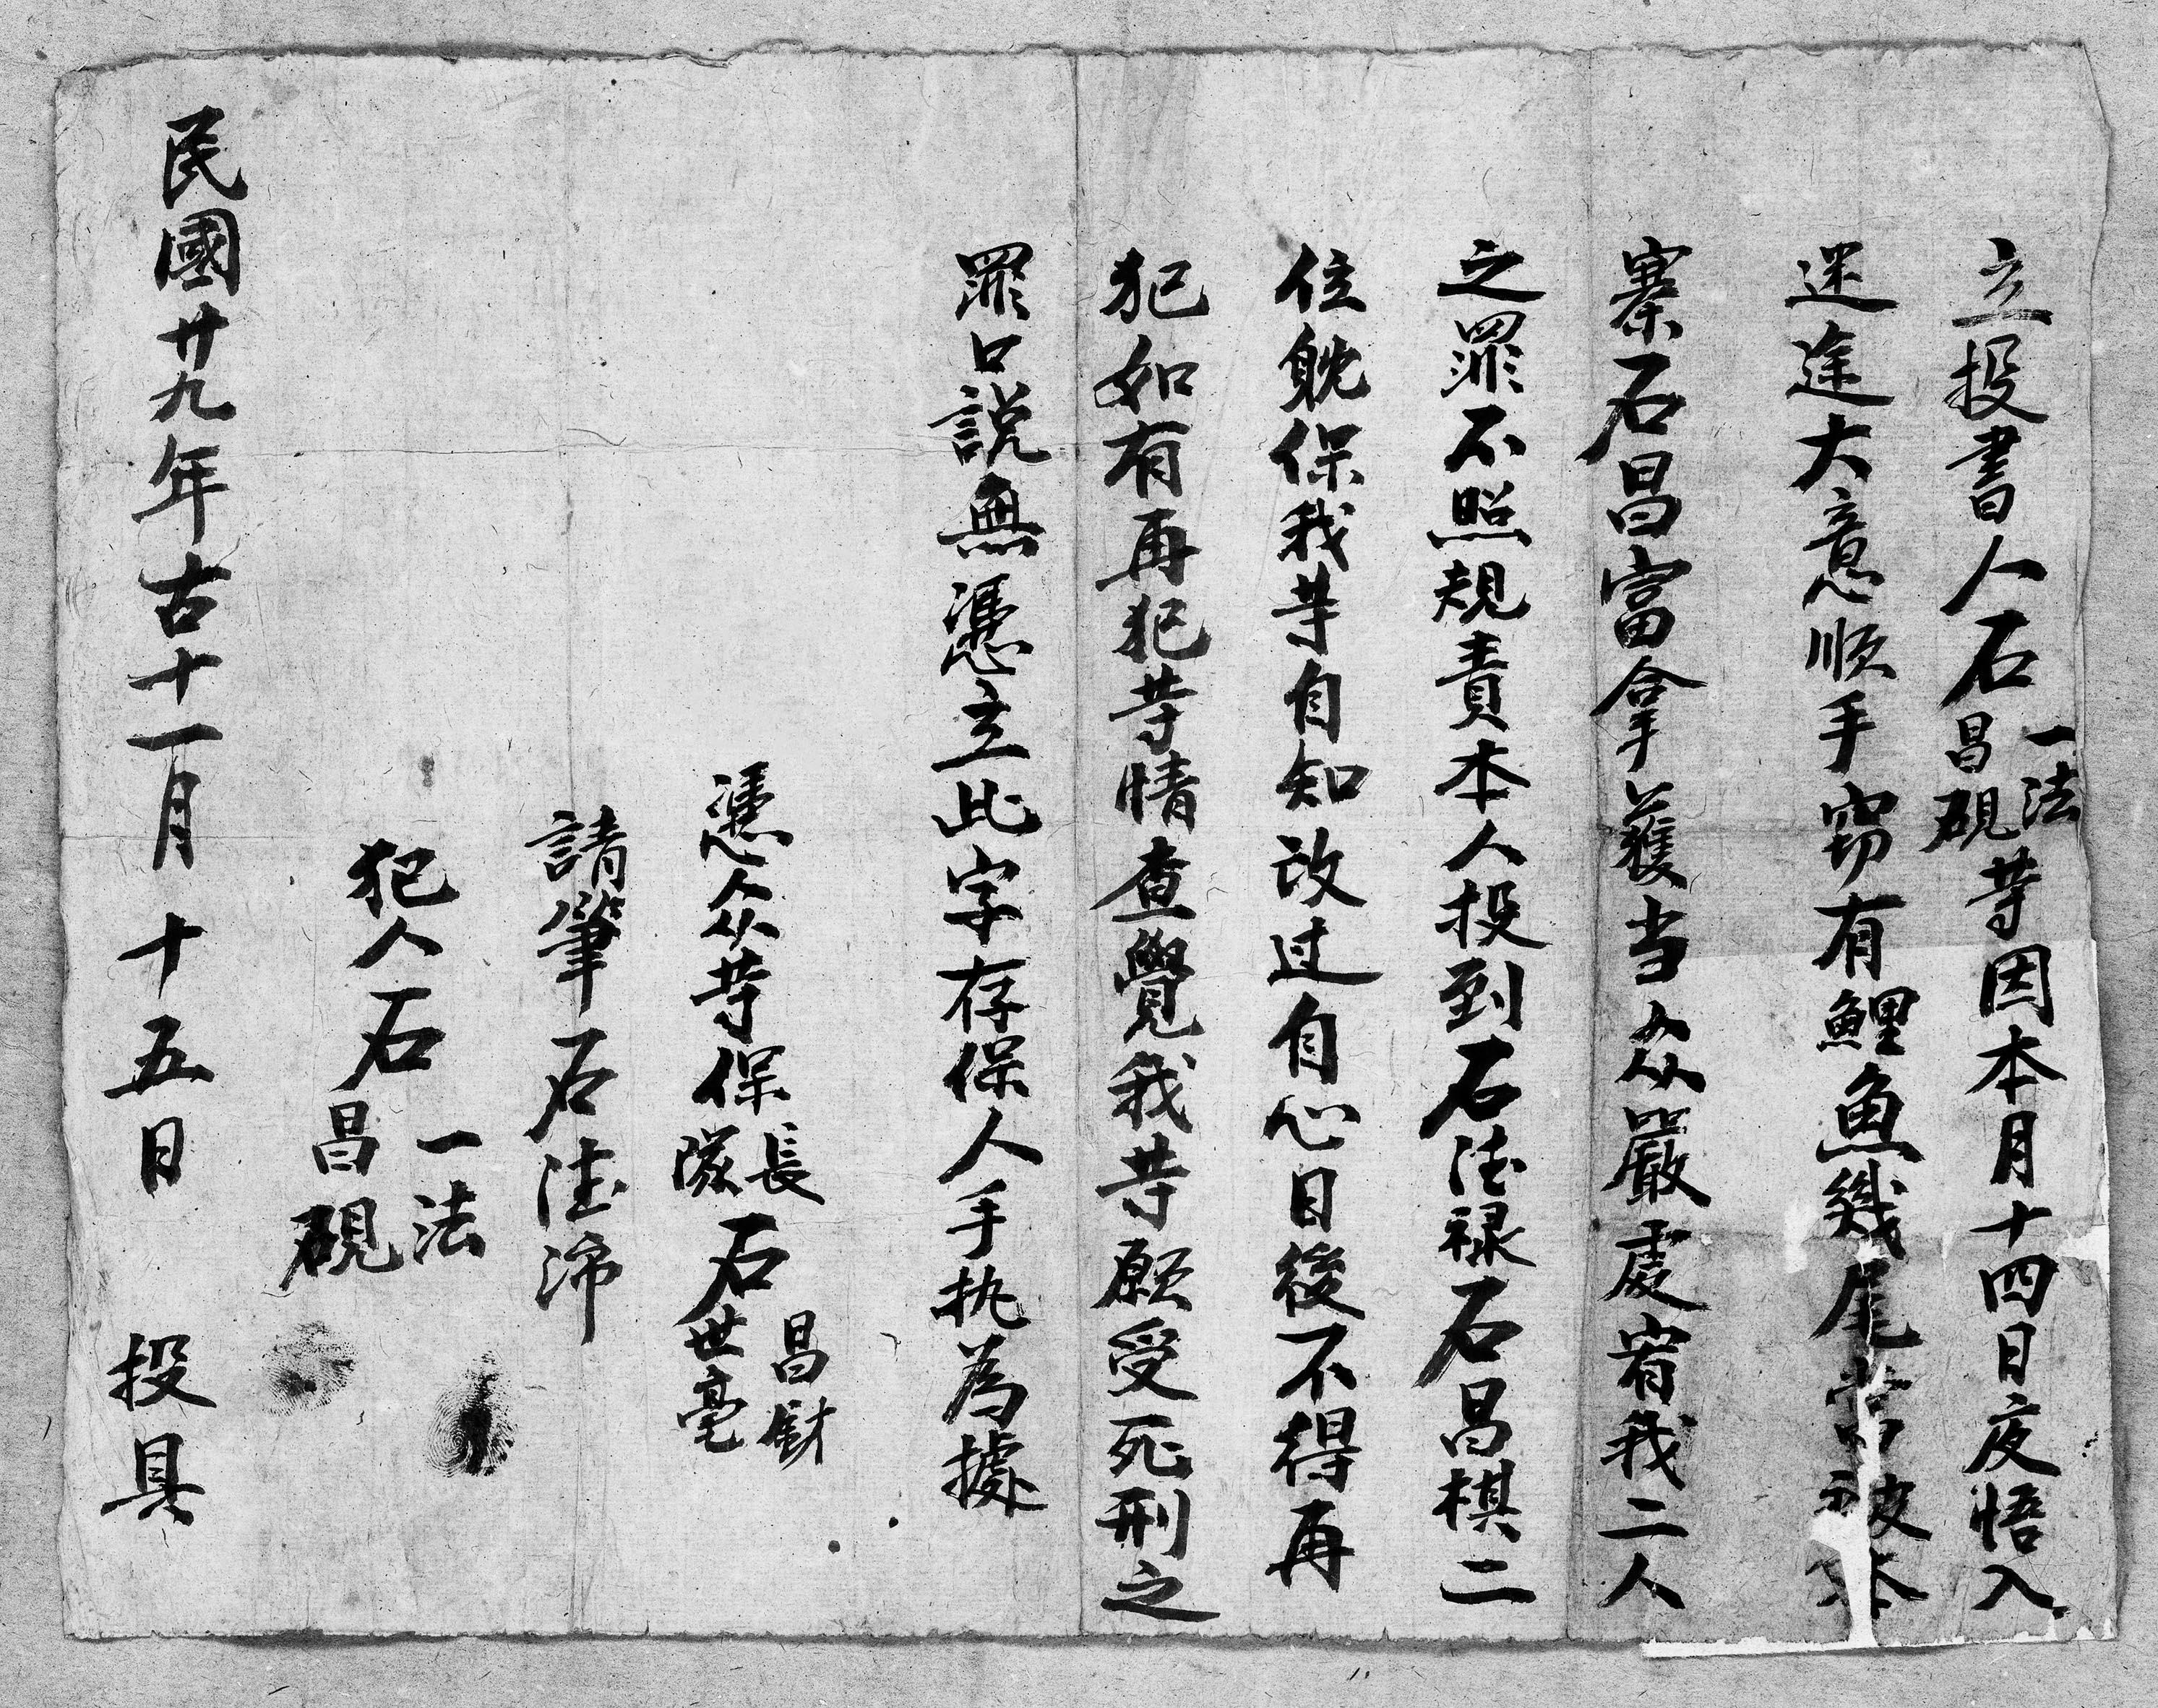 立投書人石一法昌硯等因本月十四日夜悟入
迷途大意順手窃有鯉魚幾尾當被本
寨石昌富拿獲当众嚴處宥我二人
之罪不照規責本人投到石德禄石昌棋二
位躭保我等自知改过自心日後不得再
犯如有再犯等情查覺我等愿受死刑之
罪口説無憑立此字存保人手执為據
憑众等保長隊石昌財世毫
請筆石德沛
犯人石一法昌硯
民國廿九年古十一月十五日投具